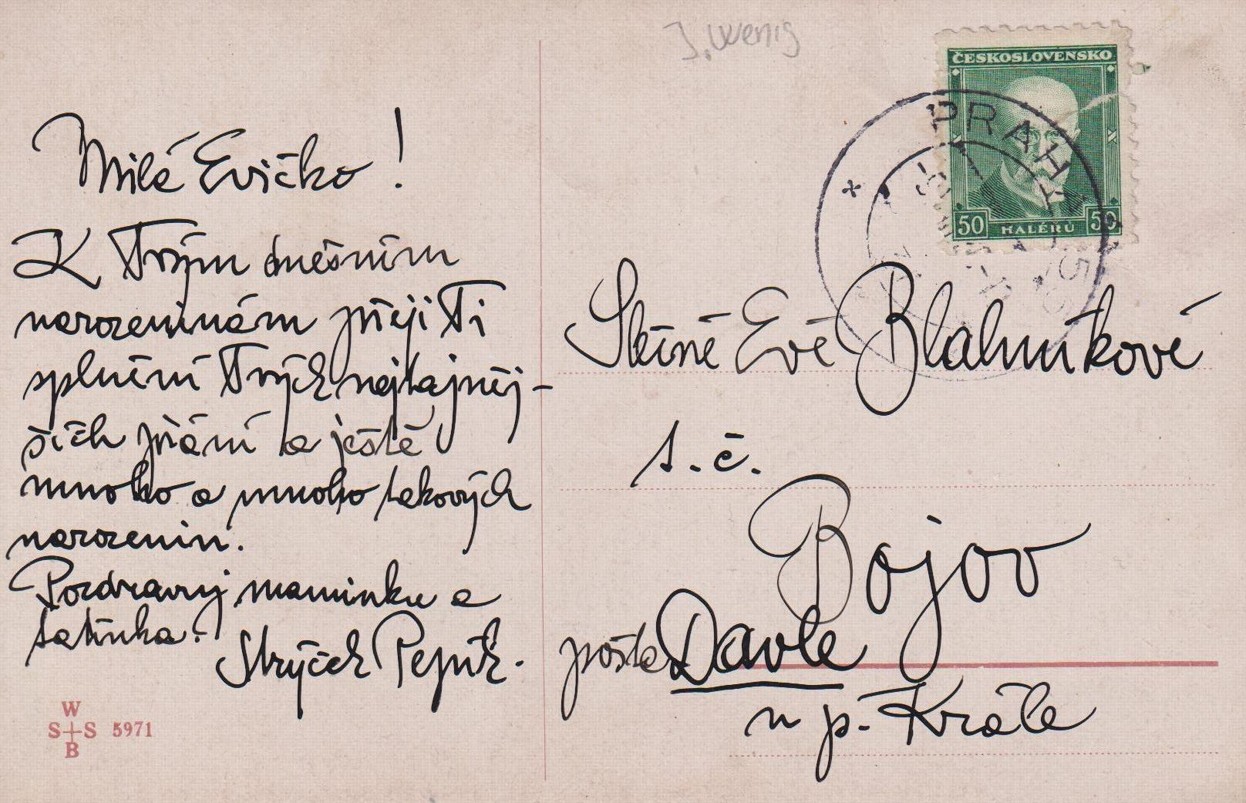 J. Wenig
ČESKOSLOVENSKO
50 HALÉRŮ 50
PRAHA
Milá Evičko!
K Tvým dnešním
narozeninám přeji Ti
splnění Tvých nejtajněj-
ších přání a ještě
mnoho a mnoho takových
narozenin.
Pozdravuj maminku a
tatínka.
Strýček Pepík.
W
S S 5971
B
Slečně Evě Blahníkové
t. č.
Bojov
pošta Davle
u p. Krále